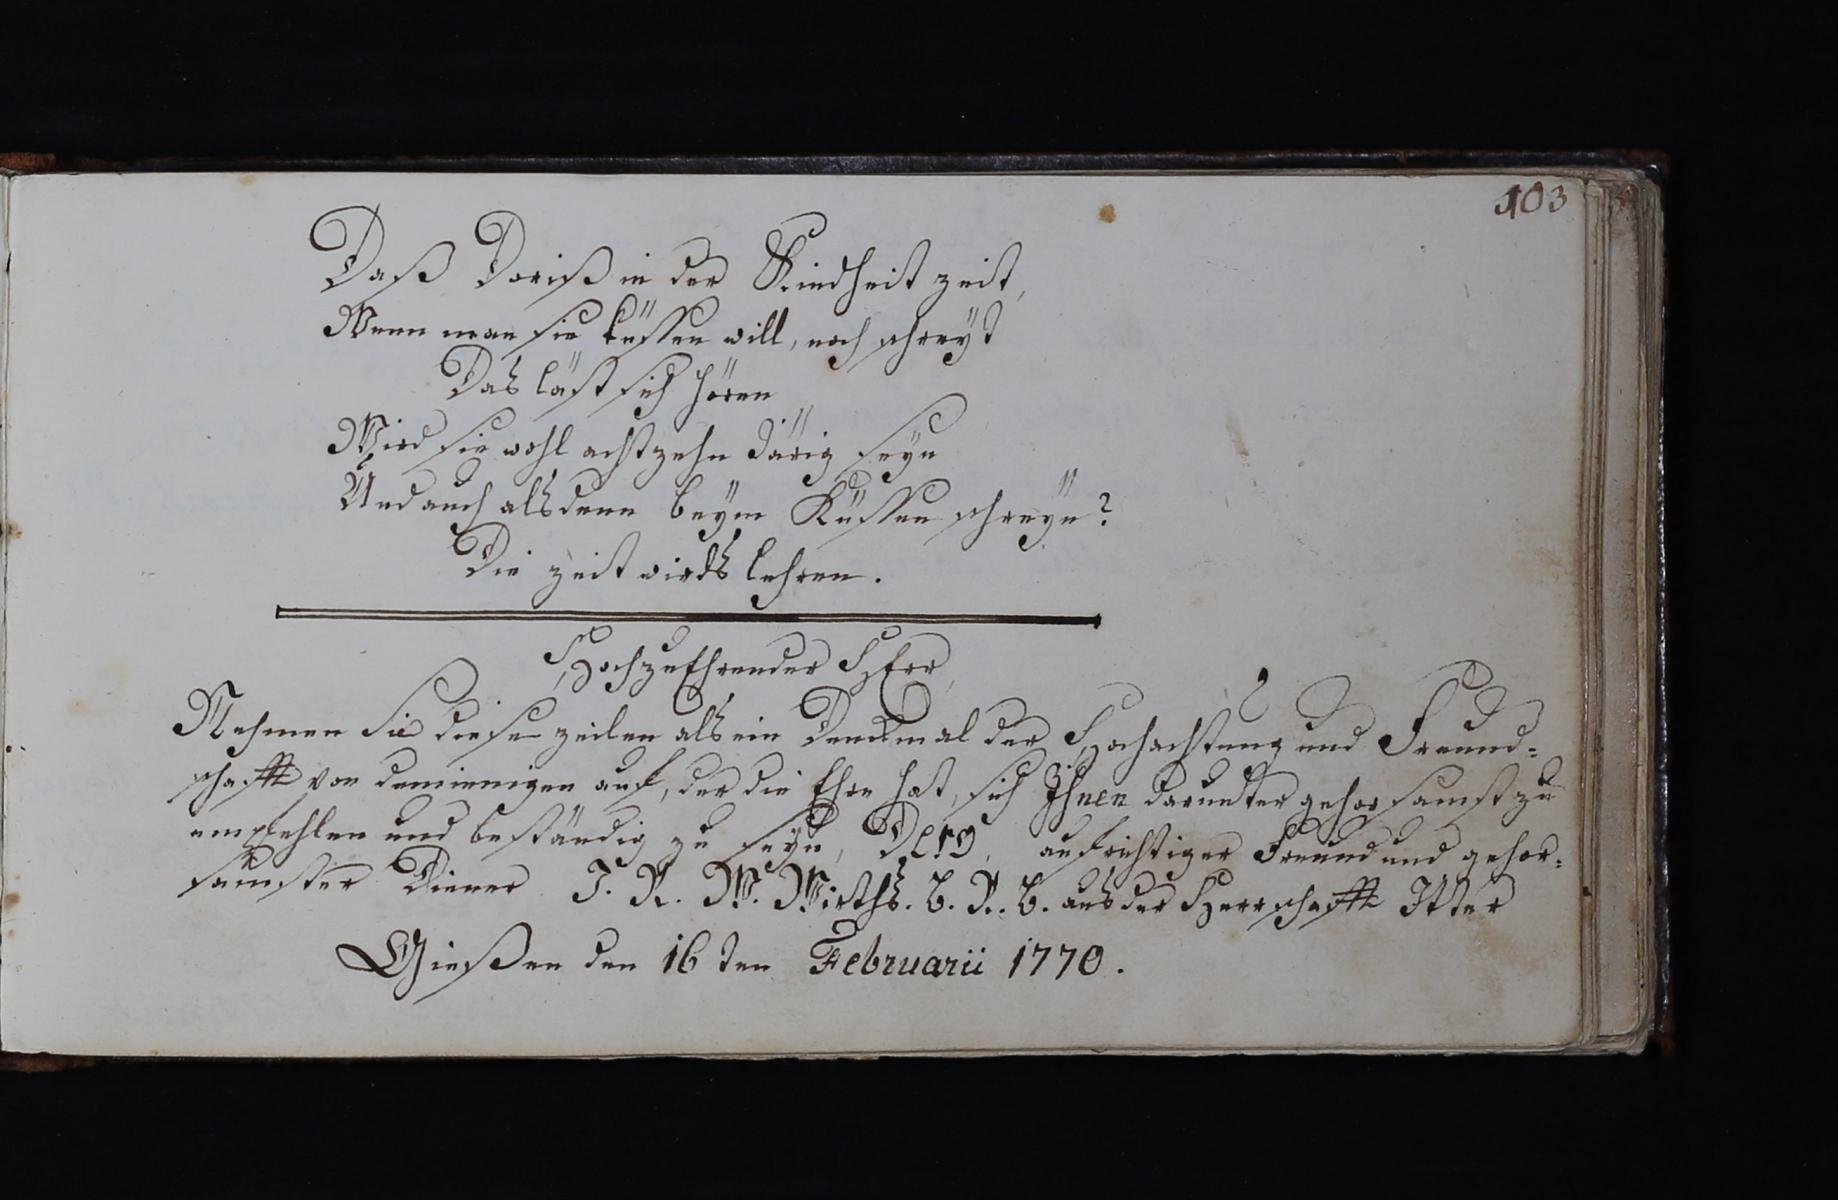 103
Daß Doriß in der Kindheit zeit,
Wenn man sie küssen will, noch schreÿt
Das läst sich hören
Wird sie wohl achtzehn Järig seÿn
Und auch alsdenn beÿm Küssen schreÿn?
Die zeit wirds lehren.
HochzuEhrender HErr,
Nehmen Sie diese zeilen als ein Denckmal der Hochachtung und Freund-
schafft von demienigen auf, der die Ehre hat, sich Ihnen darunter gehorsamst zu
empfehlen und beständig zu seÿn, Dero, aufrichtiger Freund und gehor-
samster Diener J. R. W. Wirths. B. R. B. aus der Herrschafft Itter
Gießen den 16ten Februarii 1770.